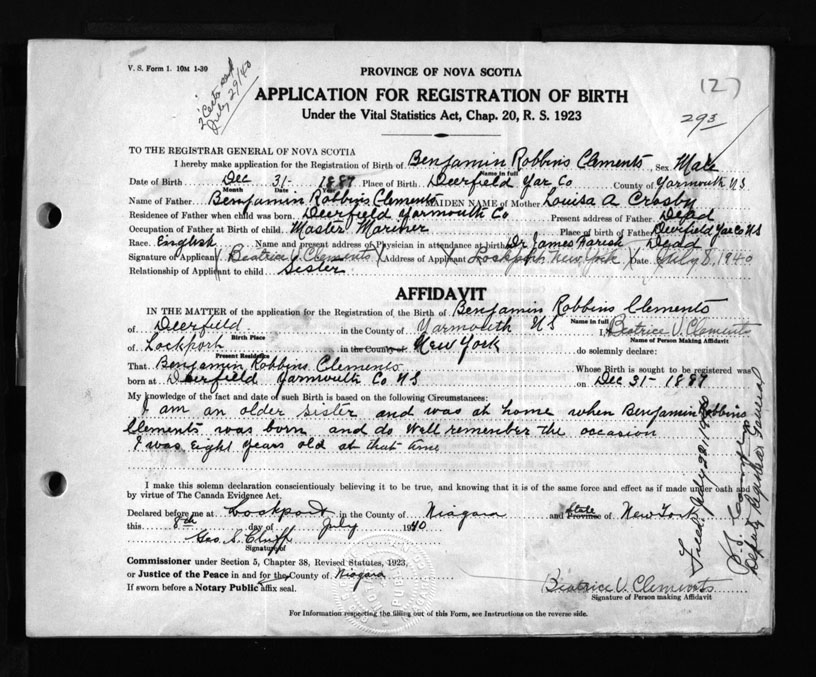 V. S. Form 1. 10M 1-39
2 Certs
July 29/40
PROVINCE OF NOVA SCOTIA
(2)
APPLICATION FOR REGISTRATION OF BIRTH
293
Under the Vital Statistics Act, Chap. 20, R. S. 1923
TO THE REGISTRAR GENERAL OF NOVA SCOTIA
I hereby make application for the Registration of Birth of Benjamin Robbins Clements Sex Male
Name in full
Date of Birth Dec 31- 1887 Place of Birth Deerfield Yar Co County of Yarmouth NS
Month Date Year
Name of Father Benjamin Robbins Clements MAIDEN NAME of Mother Louisa A Crosby
Residence of Father when child was born Deerfield Yarmouth Co Present address of Father Dead
Occupation of Father at Birth of child Master Mariner Place of birth of Father Deerfield Yar Co NS
Race English Name and present address of Physician in attendance at birth Dr James Farish Dead
Signature of Applicant Beatrice V. Clements Address of Applicant Lockport New York Date July 8, 1940
Relationship of Applicant to child Sister
AFFIDAVIT
IN THE MATTER of the application for the Registration of the Birth of Benjamin Robbins Clements
Name in full
of Deerfield in the County of Yarmouth NS I, Beatrice V. Clements
Birth Place Name of Person Making Affidavit
of Lockport in the County of New York do solemnly declare:
Present Residence
That Benjamin Robbins Clements Whose Birth is sought to be registered was
born at Deerfield Yarmouth Co NS on Dec 31- 1887
My knowledge of the fact and date of such Birth is based on the following Circumstances:
I am an older sister and was at home when Benjamin Robbins
Clements was born and do well remember the occasion
I was eight years old at that time
I make this solemn declaration conscientiously believing it to be true, and knowing that it is of the same force and effect as if made under oath and
by virtue of The Canada Evidence Act.
Declared before me at Lockport in the County of Niagara and State Province of New York
this 8th day of July 1940
Geo. S. Cluff
Signature of
Commissioner under Section 5, Chapter 38, Revised Statutes, 1923,
or Justice of the Peace in and for the County of Niagara
If sworn before a Notary Public affix seal.
Beatrice V. Clements
Signature of Person making Affidavit
For Information respecting the filling out of this Form, see Instructions on the reverse side.
July 22, 1940
Deputy Registrar General